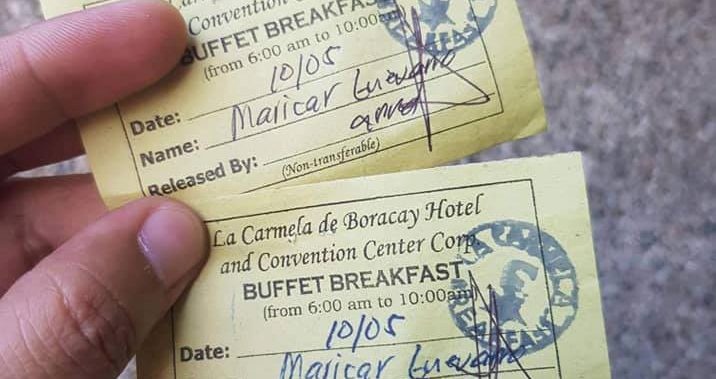 Convention Cente
BUFFET BREAKFAST
(from 6:00 am to 10:00am)
Date: 10/05
Name: Maricar Guevarra
Released By:
(Non-transferable)
La Carmela de Boracay Hotel
and Convention Center Corp.
BUFFET BREAKFAST
(from 6:00 am to 10:00am)
LA CARMELA
BREAKFAST
Date: 10/05
Maricar Guevarra